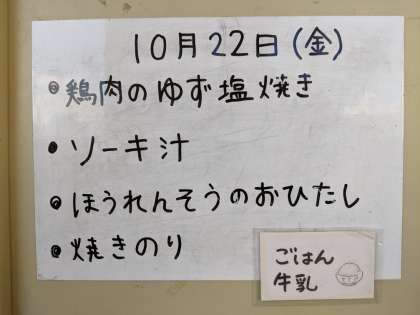 10月22日(金)
• 鶏肉のゆず塩焼き
• ソーキ汁
• ほうれんそうのおひたし
• 焼きのり
ごはん
牛乳